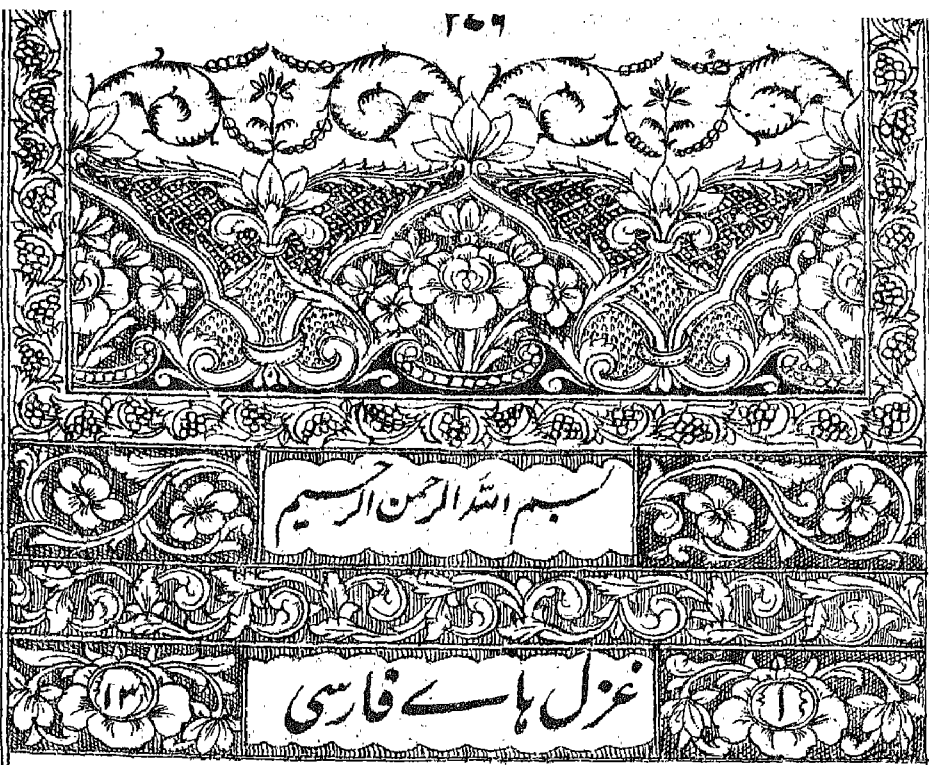 بسم اللہ الرحمن الرحیم
غزل ہاے فارسی
۱۳